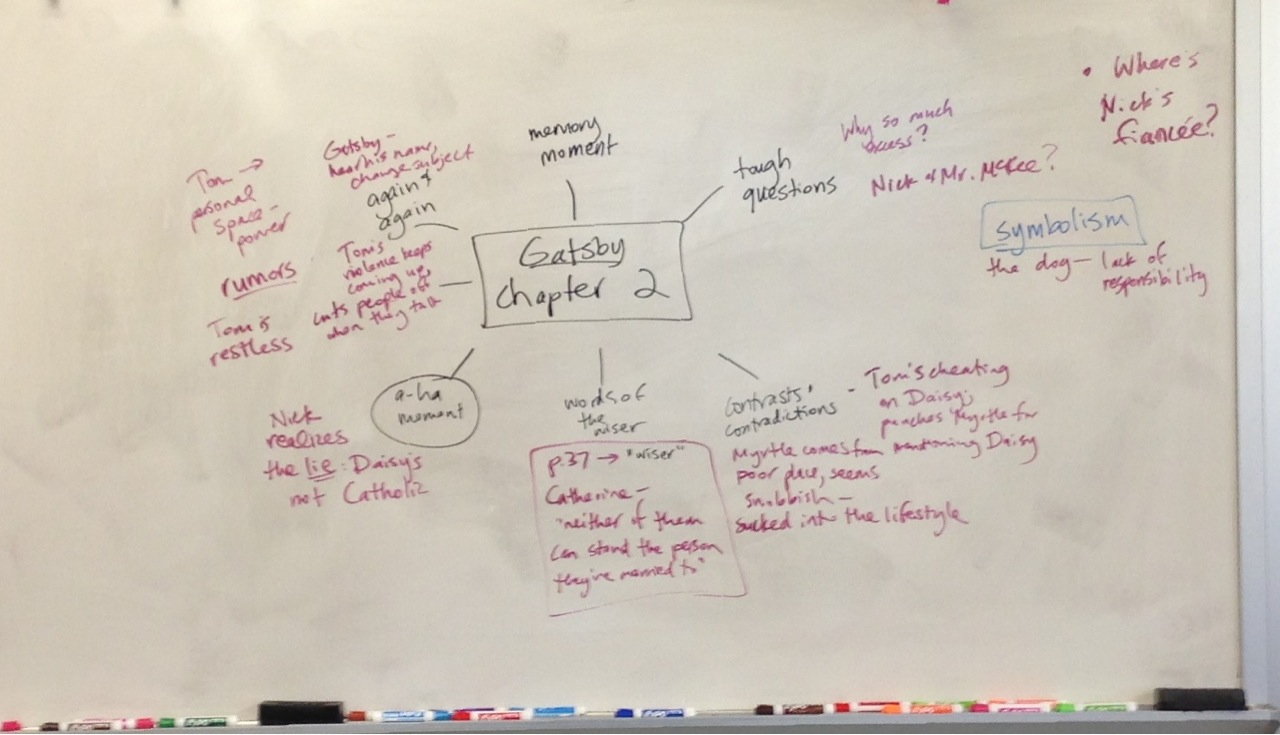 Gatsby
chapter 2
memory
moment
tough
questions
Why so much
excess?
Nick & Mr. McKee?
• Where's
Nick's
fiancée?
symbolism
the dog— lack of
responsibility
Gatsby –
hear his name,
change subject
again &
again
Tom →
personal
space –
power
rumors
Tom is
restless
Tom's
violence keeps
coming up,
cuts people off
when they talk
a-ha
moment
Nick
realizes
the lie: Daisy's
not Catholic
words of
the
wiser
p.37 → "wiser"
Catherine –
"neither of them
can stand the person
they're married to"
contrasts &
contradictions
- Tom's cheating
on Daisy;
punches Myrtle for
mentioning Daisy
Myrtle comes from
poor place, seems
snobbish –
sucked into the lifestyle